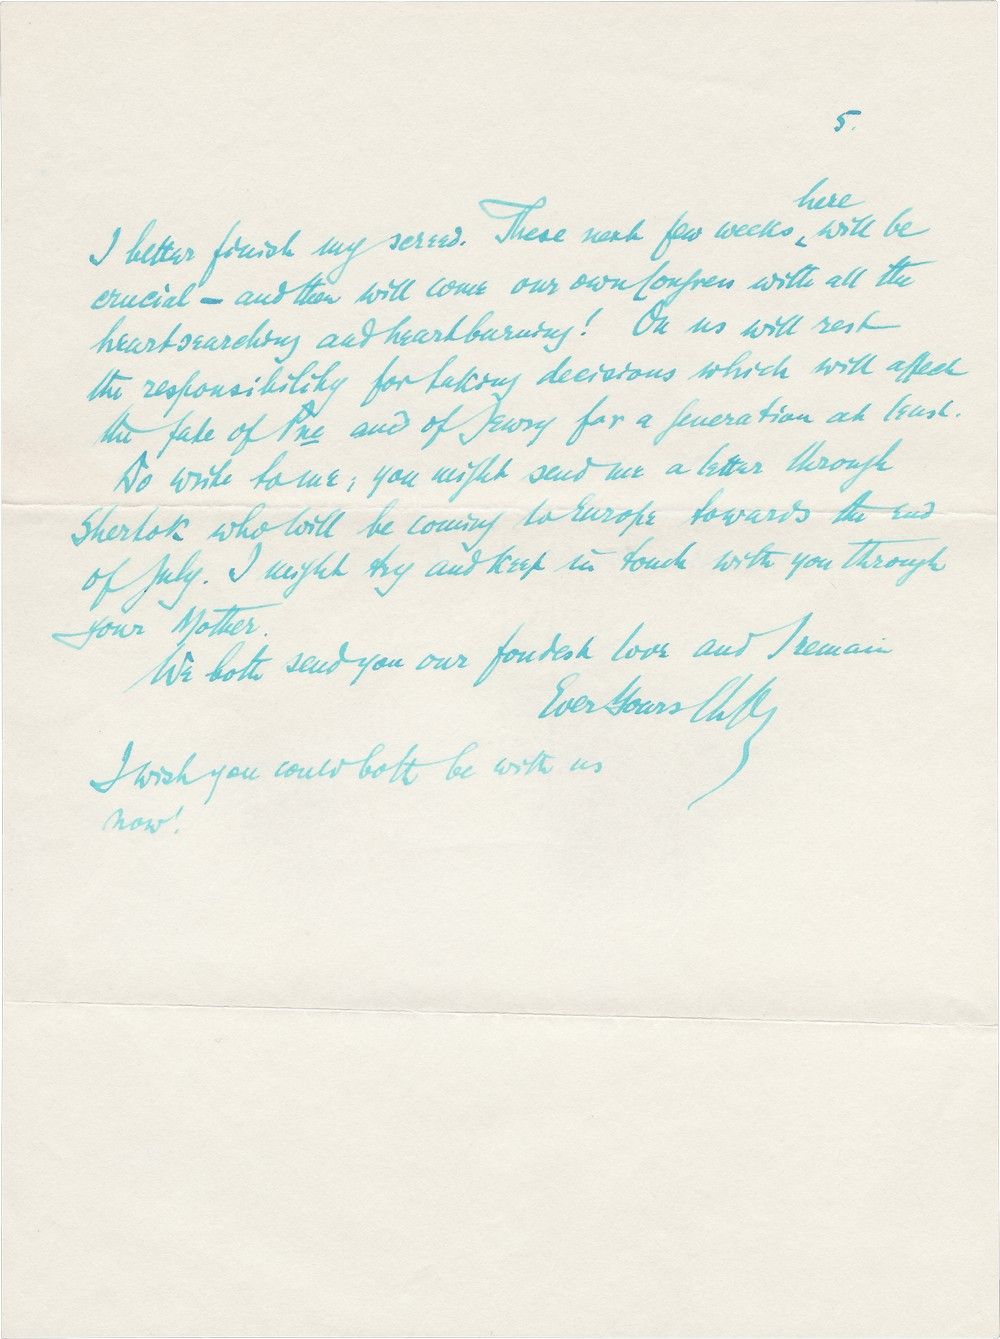 5.
here
I better finish my screed. These next few weeks ‸ will be
crucial – and then will come our own Congress with all the
heartsearching and heartburning! On us will rest
the responsibility for taking decisions which will affect
the fate of Pne and of Jewry for a generation at least.
Do write to me; you might send me a letter through
Shertok who will be coming to Europe towards the end
of July. I might try and keep in touch with you through
your Mother.
We both send you our fondest love and I remain
Ever Yours
I wish you could both be with us
now!